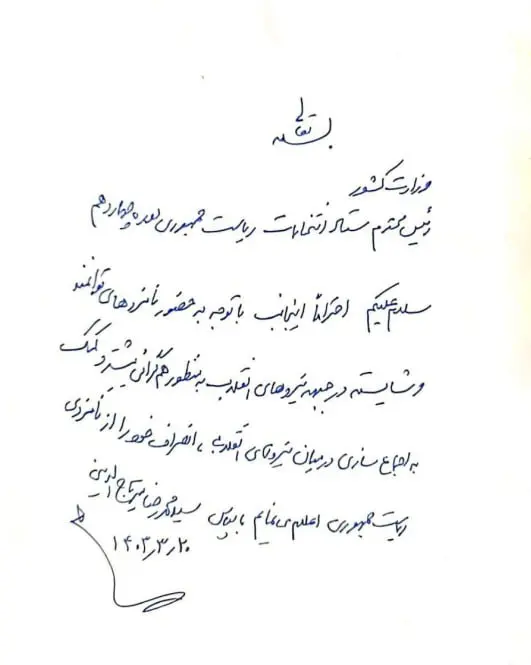 بسمه تعالی
وزارت کشور
رئیس محترم ستاد انتخابات ریاست جمهوری دوره چهاردهم
سلام علیکم احتراماً اینجانب با توجه به حضور نامزدهای توانمند
و شایسته در جبهه نیروهای انقلاب به منظور هم‌گرائی بیشتر و کمک
به اجماع سازی در میان نیروهای انقلابی، انصراف خود را از نامزدی
ریاست جمهوری اعلام می نمایم با سپاس سید محمدرضا میرتاج الدینی
۱۴۰۳٫۳٫۲۰